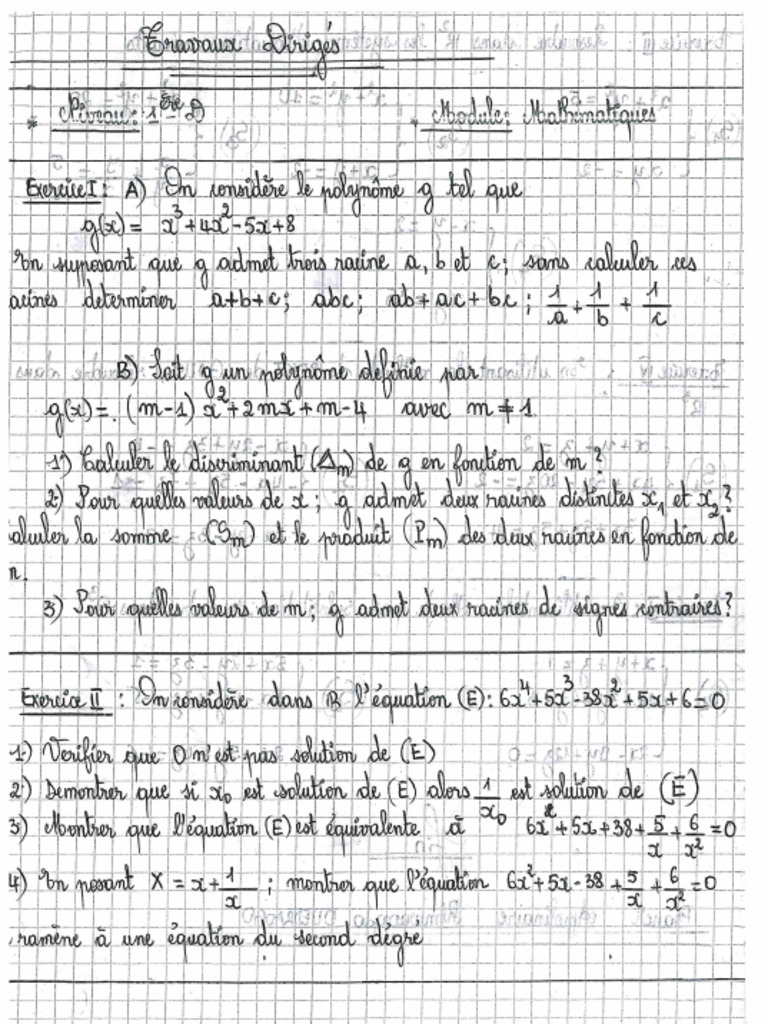 Travaux Dirigés
* Niveau: 1ère D * Module: Mathématiques
Exercice I: A) On considère le polynôme g tel que
g(x) = x³+4x²-5x+8
En supposant que g admet trois racine a, b et c; sans calculer ces
acines determiner a+b+c; abc; ab+ac+bc; 1/a + 1/b + 1/c
B) Soit g un polynôme definie par
g(x) = (m-1)x²+2mx+m-4 avec m ≠ 1
1°) Calculer le discriminant (Δm) de g en fonction de m?
2°) Pour quelles valeurs de x; g admet deux racines distinctes x₁ et x₂?
alculer la somme (Sm) et le produit (Pm) des deux racines en fonction de
n.
3) Pour quelles valeurs de m; g admet deux racines de signes contraires?
Exercice II : On considère dans R l'équation (E): 6x⁴+5x³-38x²+5x+6=0
1) Verifier que 0 n'est pas solution de (E)
2) Demontrer que si x₀ est solution de (E) alors 1/x₀ est solution de (E)
3) Montrer que l'équation (E) est équivalente à 6x²+5x+38+5/x+6/x²=0
4) En posant X = x+1/x; montrer que l'équation 6x²+5x-38+5/x+6/x²=0
ramène à une équation du second dégre